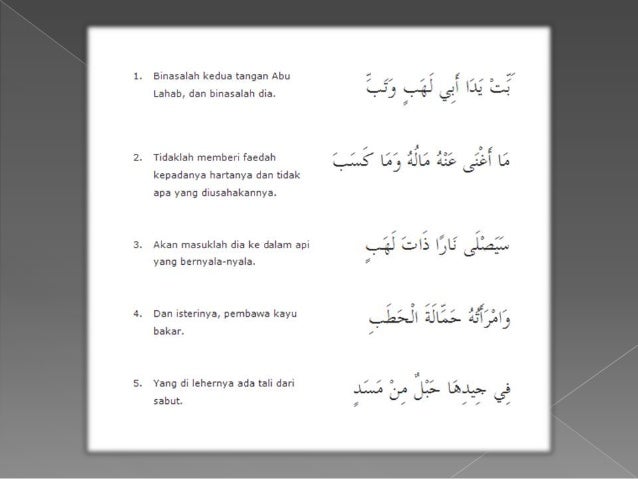 1. Binasalah kedua tangan Abu
Lahab, dan binasalah dia.
تَبَّتْ يَدَا أَبِي لَهَبٍ وَتَبَّ
2. Tidaklah memberi faedah
kepadanya hartanya dan tidak
apa yang diusahakannya.
مَا أَغْنَى عَنْهُ مَالُهُ وَمَا كَسَبَ
3. Akan masuklah dia ke dalam api
yang bernyala-nyala.
سَيَصْلَى نَارًا ذَاتَ لَهَبٍ
4. Dan isterinya, pembawa kayu
bakar.
وَامْرَأَتُهُ حَمَّالَةَ الْحَطَبِ
5. Yang di lehernya ada tali dari
sabut.
فِي جِيدِهَا حَبْلٌ مِنْ مَسَدٍ